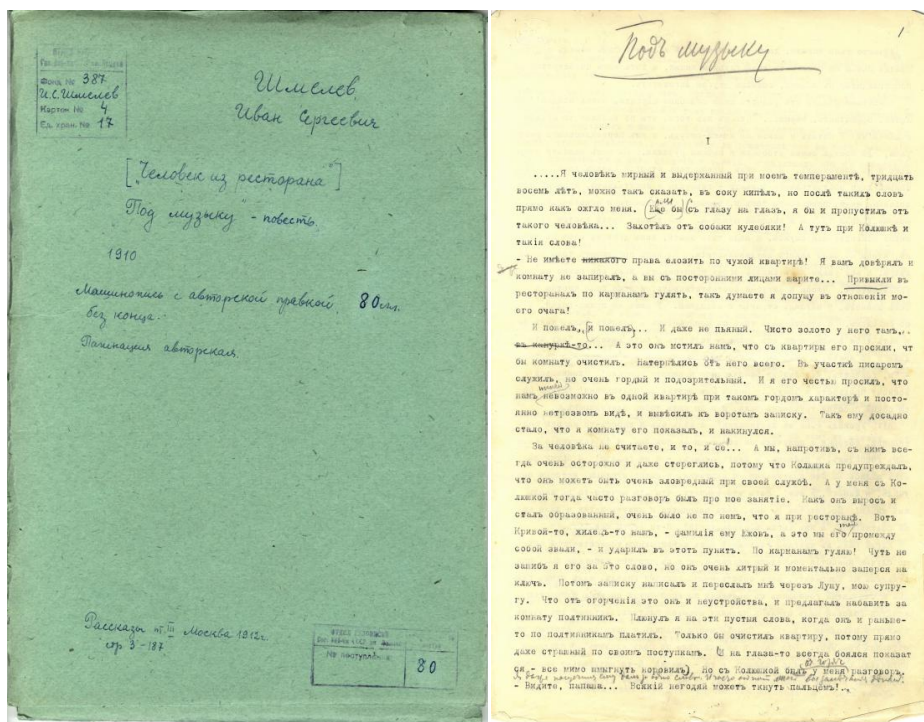 Фонд № 387
И.С. Шмелев
Картон № 4
Ед. хран. № 17
Шмелев
Иван Сергеевич
["Человек из ресторана"]
"Под музыку" - повесть.
1910
Машинопись с авторской правкой. 80 лл.
без конца.
Пагинация авторская.
Рассказы т. III Москва 1912 г.
стр 3-187
№ поступления
80
1
Подъ музыку
I
.....Я человѣкъ мирный и выдержанный при моемъ темпераментѣ, тридцать
восемь лѣтъ, можно такъ сказать, въ соку кипѣлъ, но послѣ такихъ словъ
прямо какъ ожгло меня. Еще бы (съ глазу на глазъ, я бы и пропустилъ отъ
такого человѣка... Захотѣлъ отъ собаки кулебяки! А тутъ при Колюшкѣ и
такія слова!
- Не имѣете никакого права елозить по чужой квартирѣ! Я вамъ довѣрялъ и
комнату не запиралъ, а вы съ посторонними лицами шарите... Привыкли въ
ресторанахъ по карманамъ гулять, такъ думаете я допущу въ отношеніи мо-
его очага!
И пошелъ,.. (и пошелъ)... И даже не пьяный. Чисто золото у него тамъ..
въ конуркѣ-то... А это онъ мстилъ намъ, что съ квартиры его просили, чт
бы комнату очистилъ. Натерпѣлись отъ него всего. Въ участкѣ писаремъ
служилъ, но очень гордый и подозрительный. И я его честью просилъ, что
намъ невозможно въ одной квартирѣ при такомъ гордомъ характерѣ и посто-
янно нетрезвомъ видѣ, и вывѣсилъ къ воротамъ записку. Такъ ему досадно
стало, что я комнату его показалъ, и накинулся.
За человѣка не считаете, и то, и се!... А мы, напротивъ, съ нимъ все-
гда очень осторожно и даже стереглись, потому что Колюшка предупреждалъ,
что онъ можетъ быть очень зловредный при своей службѣ. А у меня съ Ко-
люшкой тогда часто разговоръ былъ про мое занятіе. Какъ онъ выросъ и
сталъ образованный, очень было не по немъ, что я при ресторанѣ. Вотъ
Кривой-то, жилецъ-то нашъ, - фамилія ему Ежовъ, а это мы его промежду
собой звали, - и ударилъ въ этотъ пунктъ. По карманамъ гуляю! Чуть не
зашибъ я его за это слово, но онъ очень хитрый и моментально заперся на
ключъ. Потомъ записку написалъ и переслалъ мнѣ черезъ Лушу, мою супру-
гу. Что отъ огорченія это онъ и неустройства, и предлагалъ набавить за
комнату полтинникъ. Плюнулъ я на эти пустыя слова, когда онъ и раньше-
то по полтинникамъ платилъ. Только бы очистилъ квартиру, потому прямо
даже страшный по своимъ поступкамъ. И на глаза-то всегда боялся показат
ся - все мимо шмыгнуть норовилъ). Но съ Колюшкой былъ у меня разговоръ.
- Видите, папаша... Всякій негодяй можетъ ткнуть пальцемъ!..